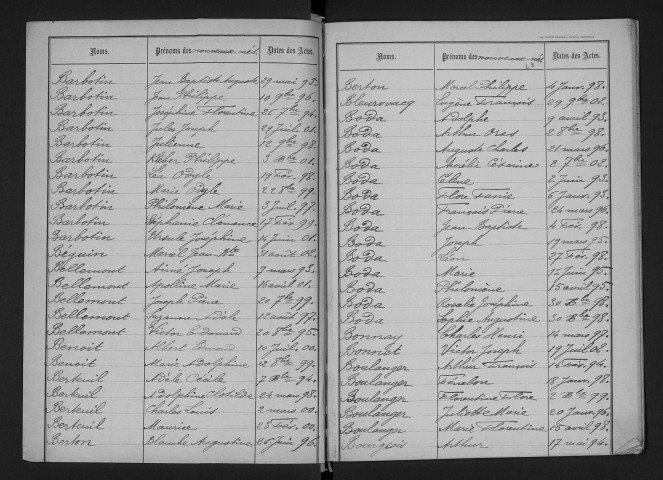 Noms. Prénoms des nouveaux-nés. Dates des Actes.
Barbotin Jean Baptiste Auguste 29 mai 95.
Barbotin Jean Philippe 10 9bre 96.
Barbotin Joséphine Florentine 26 7bre 94.
Barbotin Jules Joseph 29 Juil. 01.
Barbotin Julienne 12 9bre 98
Barbotin Kléber Philippe 3 Xbre 01.
Barbotin Léa Odyle 19 Fév. 98
Barbotin Marie Odyle 22 8bre 99.
Barbotin Philomène Marie 3 Juil. 97.
Barbotin Stéphanie Clémence 17 Fév. 99
Barbotin Ursule Joséphine 14 Juin 01.
Béguin Marcel Jean Bte 31 août 02.
Bellamont Aimé Joseph 7 mars 93.
Bellamont Apolline Marie 16 avril 01.
Bellamont Joseph Pierre 20 7bre 99.
Bellamont Suzanne Adèle 12 août 97.
Bellamont Victor Edouard 20 8bre 95.
Benoit Albert Edmond 10 Juil. 00.
Benoit Marie Adolphine 12 8bre 99.
Berteuil Adèle Cécile 7 Xbre 94.
Berteuil Adolphine Clotilde 24 mars 98.
Berteuil Charles Louis 2 mars 00.
Berteuil Maurice 23 Fév. 00.
Berton Blanche Augustine 26 Juin 96.
Noms. Prénoms des nouveaux-nés. Dates des Actes.
Berton Marcel Philippe 4 Janv. 98.
Bleurovacq Eugène François 29 9bre 02.
Boda Adolphe 9 avril 93.
Boda Arthur 2 8bre 98.
Boda Auguste Charles 21 mars 96.
Boda Aurélie Césarine 2 7bre 02.
Boda Céline 2 Juin 93.
Boda Flore 6 Janv. 93.
Boda François Pierre 24 mars 96.
Boda Jean-Baptiste 4 Fév. 98.
Boda Joseph 19 mars 95.
Boda Léon 27 Fév. 98.
Boda Marie 14 Juin 95.
Boda Philomène 15 avril 95.
Boda Rosalie Joséphine 30 Xbre 98.
Boda Sophie Augustine 30 Xbre 98.
Bonnay Charles Henri 14 mars 97.
Bonnet Victor Joseph 19 Juil. 02.
Boulanger Arthur François 16 Fév. 94.
Boulanger Fénelon 18 Janv. 98.
Boulanger Florentine Flore 2 Xbre 99.
Boulanger Juliette Marie 20 Janv. 96.
Boulanger Marie Florentine 15 avril 98.
Bourgeois Arthur 17 mai 94.